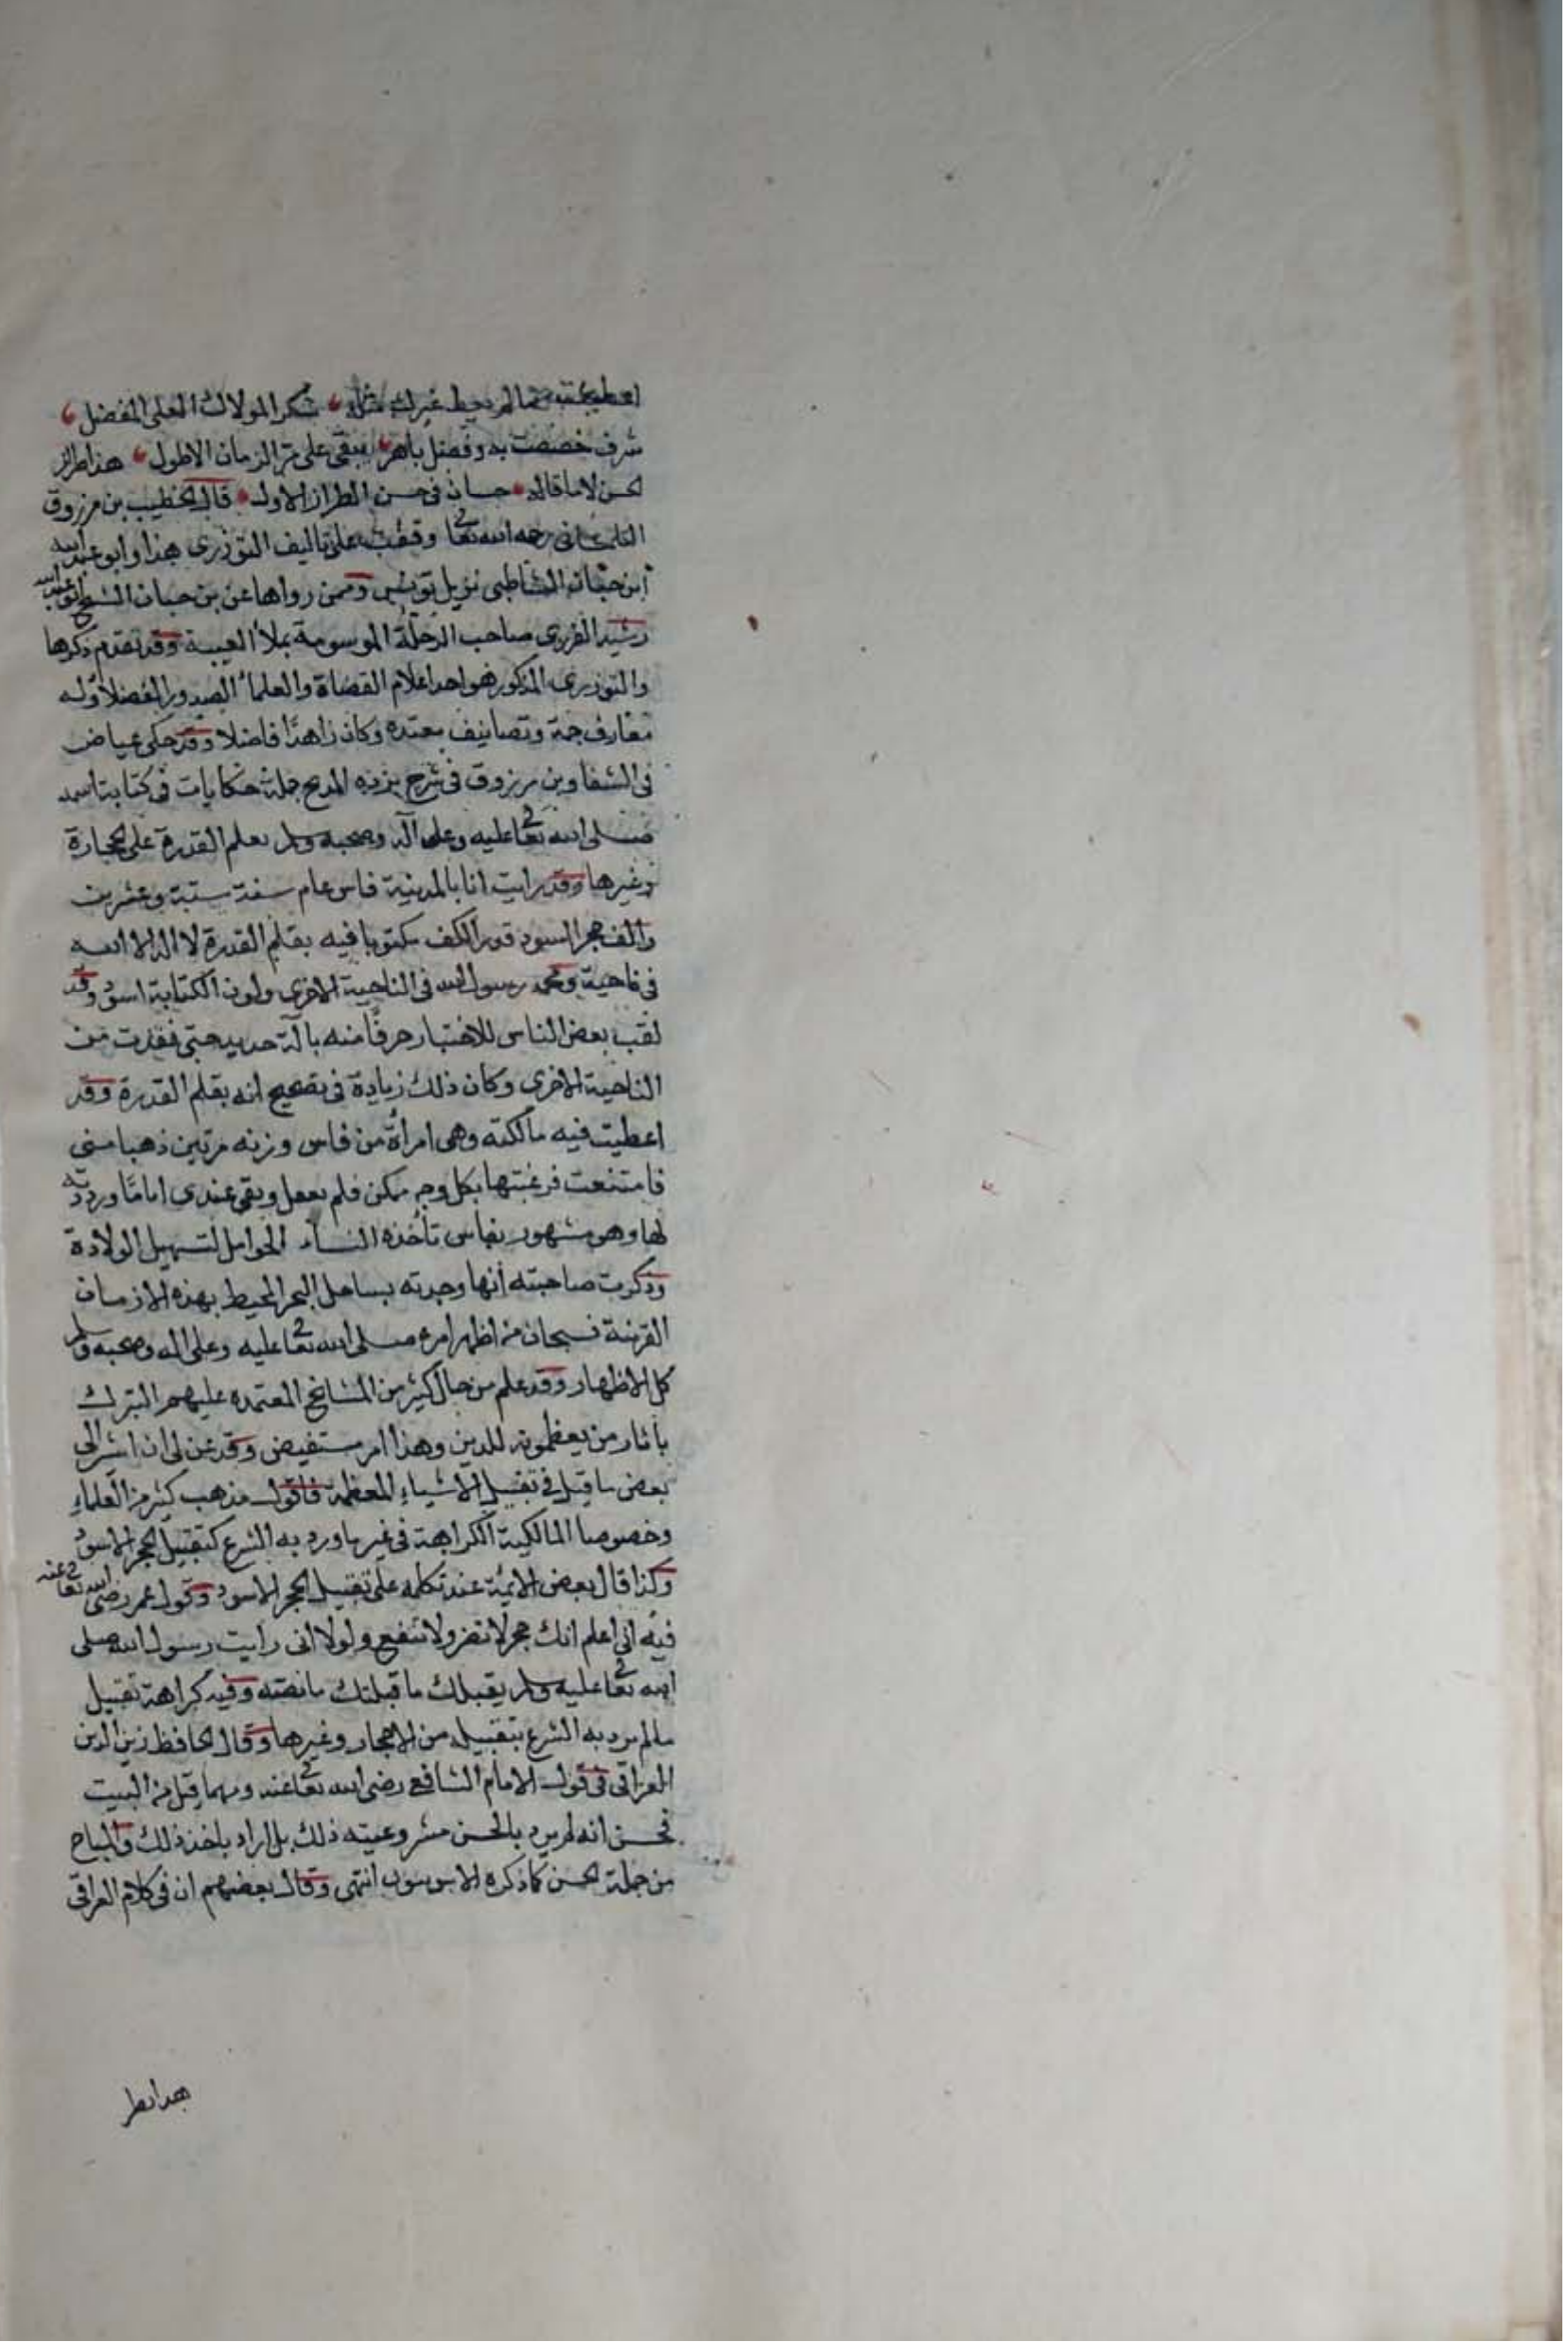 اعطيت مالم يعط غيرك مثله ، شكرا لمولاك العلى المفضل ،
شرف خصصت به وفضل باهر ، يبقى على مر الزمان الاطول ، هذا طراز
لحسن لا ما قاله • حسان فى حسن الطراز الاول • قال الخطيب بن مرزوق
التلمسانى رحمه الله تعا وقفت على تاليف التوزرى هذا وابو عبد الله
ابن حبان الشاطبى نزيل تونس وممن رواها عن بن حبان الشيخ ابو عبد الله
رشيد الفهرى صاحب الرحلة الموسومة بملأ العيبة وقد تقدم ذكرها
والتوزرى المذكور هو احد اعلام القضاة والعلماء الصدور الفضلا وله
معارف جمة وتصانيف معتده وكان زاهدًا فاضلا وقد حكى عياض
فى الشفا وبن مرزوق فى شرح بردة المديح جملة حكايات فى كتابة اسمه
صلى الله تعا عليه وعلى آله وصحبه وسلم بقلم القدرة على الحجارة
وغيرها وقد رايت انا بالمدينة فاس عام سنة ستة وعشرين
والف حجر اسود قدر الكف مكتوبا فيه بقلم القدرة لا اله الا الله
فى ناحية ومحمد رسول الله فى الناحية الاخرى ولون الكتابة اسود وقد
نقب بعض الناس للاختبار حرفًا منه بآلة حديد حتى نفذت من
الناحية الاخرى وكان ذلك زيادة فى تصحيح انه بقلم القدرة وقد
اعطيت فيه مالكته وهى امرأة من فاس وزنه مرتين ذهبا منى
فامتنعت فرغبتها بكل وجه ممكن فلم تفعل وبقى عندى اياما ورددته
لها وهو مشهور بفاس تأخذه النساء الحوامل لتسهيل الولادة
وذكرت صاحبته أنها وجدته بساحل البحر المحيط بهذه الازمان
القريبة فسبحان من اظهر امره صلى الله تعا عليه وعلى اله وصحبه وسلم
كل الاظهار وقد علم من حال كثير من المشائخ المعتمده عليهم التبرك
بآثار من يعظمونه للدين وهذا امر مستفيض وقد عن لى ان اشير الى
بعض ما قيل فى تقبيل الاشياء المعظمة فاقول مذهب كثير من العلماء
وخصوصا المالكية الكراهة فى غير ما ورد به الشرع كتقبيل الحجر الاسود
وكذا قال بعض الائمة عند تكلمه على تقبيل الحجر الاسود وقول عمر رضى الله تعا عنه
فيه انى اعلم انك حجر لا تضر ولا تنفع ولولا انى رايت رسول الله صلى
الله تعا عليه وسلم يقبلك ما قبلتك ما نصه وفيه كراهة تقبيل
مالم يرد به الشرع بتقبيله من الاحجار وغيرها وقال الحافظ زين الدين
العراقى فى قول الامام الشافعى رضى الله تعا عنه ومهما قبل من البيت
فحسن انه لم يرد بالحسن مشروعيته ذلك بل اراد باخذ ذلك والمباح
من جملة الحسن كما ذكره الاصوليون انتهى وقال بعضهم ان فى كلام العراقى